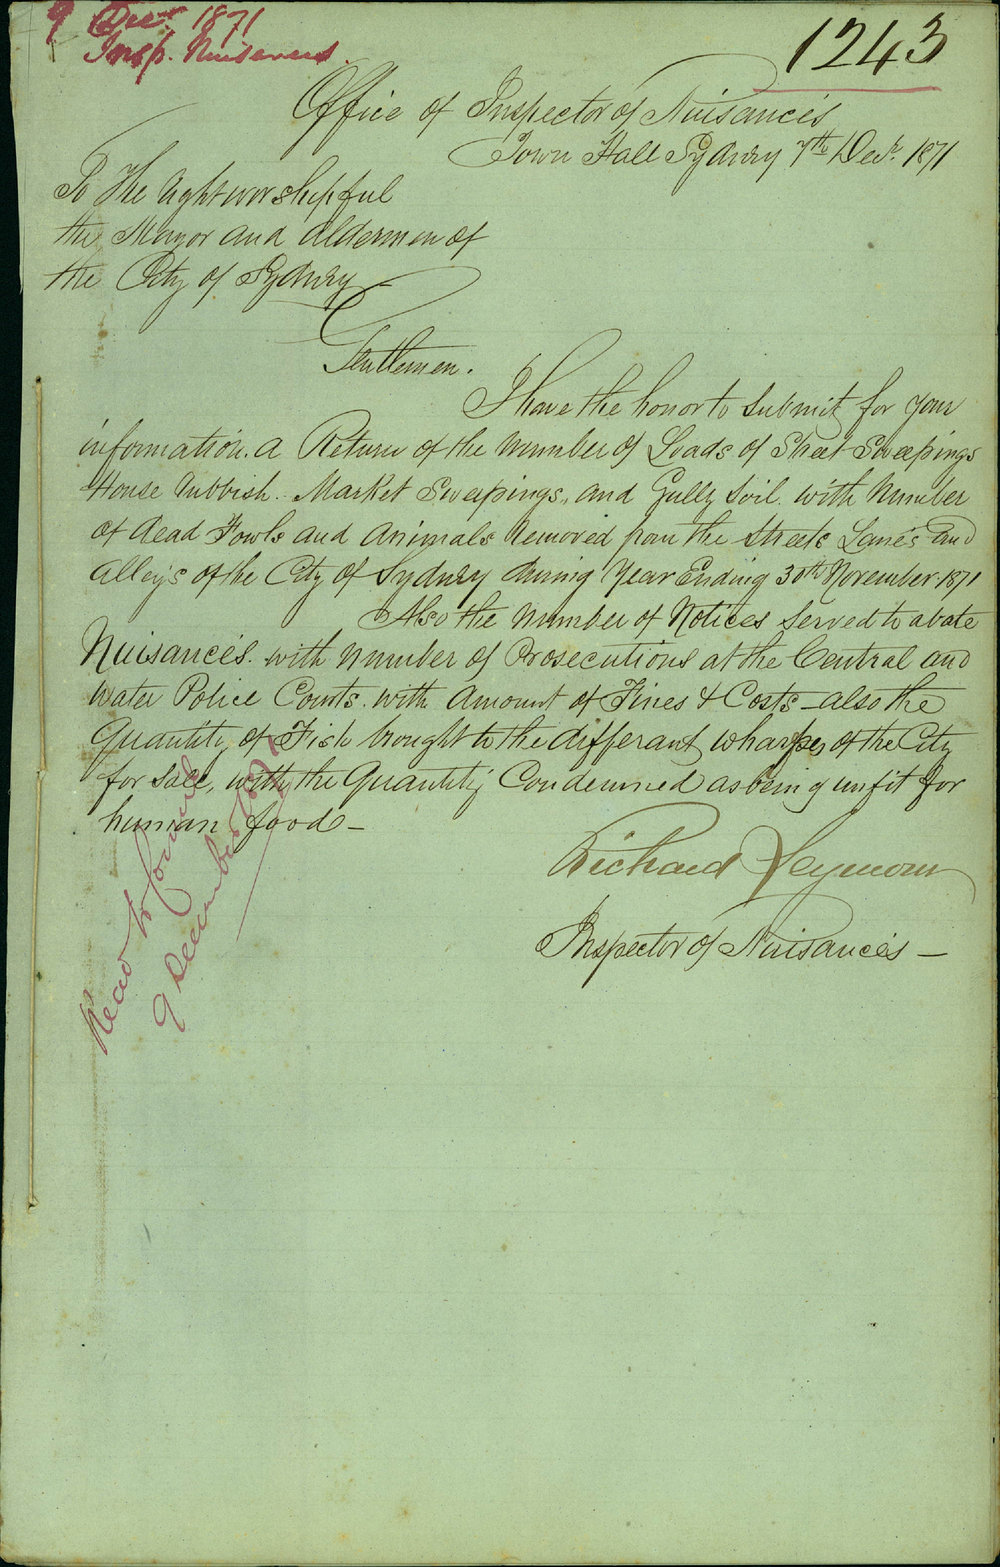 9 Decr 1871
Insp. Nuisances
1243
Office of Inspector of Nuisances
Town Hall Sydney 7th Decr. 1871
To The Right worshipful
the Mayor and Aldermen of
the City of Sydney
Gentlemen.
I have the honor to submit for your
information. a Return of the number of Loads of Street Sweepings
House Rubbish. Market Sweepings, and Gully Soil. with Number
of dead Fowls and Animals Removed from the Streets Lanes and
Alleys of the City of Sydney during Year Ending 30th November 1871
Also the number of Notices served to abate
Nuisances. with number of Prosecutions at the Central and
Water Police Courts. with Amount of Fines & Costs - also the
Quantity of Fish brought to the differant wharfes of the City
for Sale, with the Quantity Condemned as being unfit for
human food -
Richard Seymour
Inspector of Nuisances -
Read to Council
9 December 1871